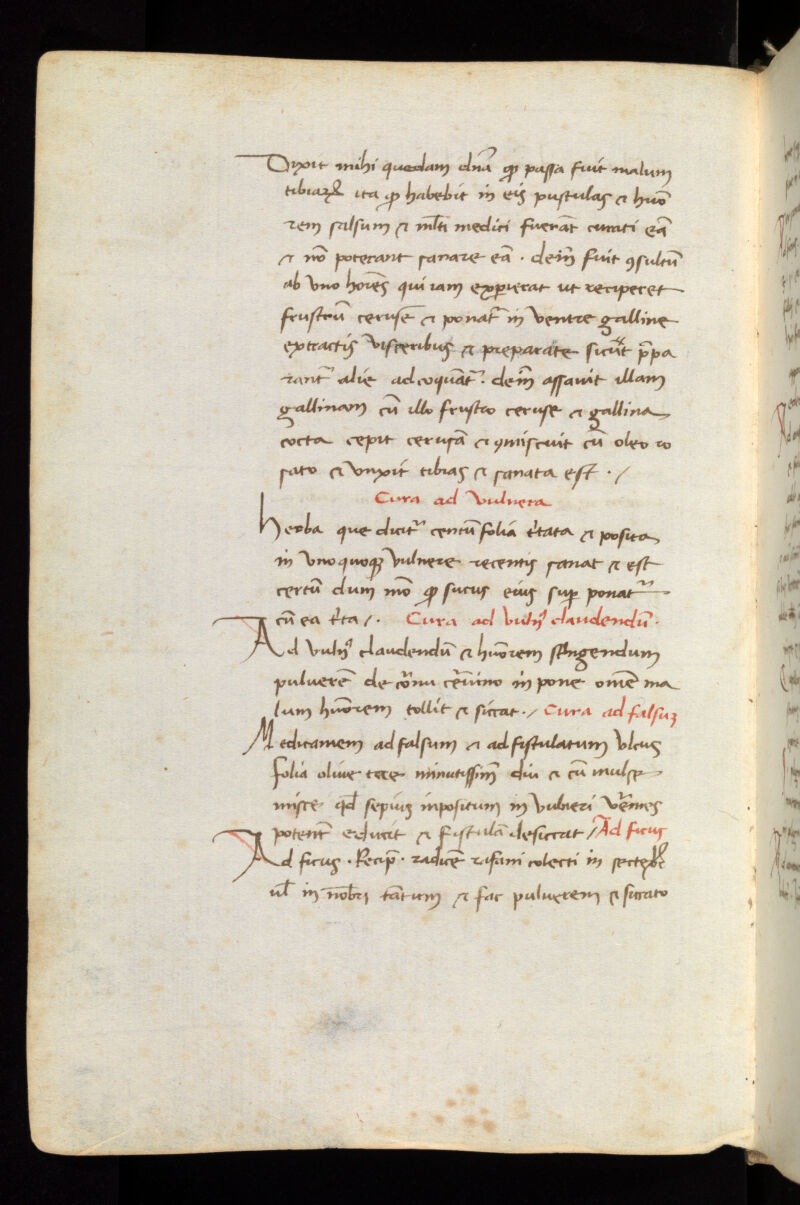 Dixit mihi quedam dn̄a qꝓ passa fuit malum
tibiaꝝ ita qꝓ habebit in eis pustulas ⁊ huō
rem salsum ⁊ ml̄ti medici fuerāt curati eā
⁊ nō poterant sanare eā . dein̄ fuit ꝯsultū
ab vno hoīes qui iam experierat ut reciperet
frustrū ceruse ⁊ ponat᷑ in ventre galline
extractis visceribus ⁊ preparate sicut p̄pa
rant᷑ alie ad coquāt᷑ . dein̄ assauit illam
gallinam cū illo frustro ceruse ⁊ gallina
cocta cepit cerusā ⁊ ꝯmiscuit cū oleo ro
sato ⁊ vnxit tibias ⁊ sanata est . /
Cura ad vulnera
Herba que dicit᷑ centū folia t̄tata ⁊ posita
in vnoquoqꝫ vulnere recentis sanat ⁊ est
certū dum mō qꝓ sucus eius suꝑ ponat᷑
cū ea t̄ta / . Cura ad vuln᷑ claudendū .
Ad vuln᷑ claudendū ⁊ huōrem stringendum
pulverē de cornu c̄uino in pone omē ma
lum huōrem tollit ⁊ siccat . / Cura ad falsuꝫ
Medicamem ad falsum ⁊ ad fistulatum vlcus
folia oliue tere minutissim̄ diu ⁊ cū
misce qd̄ sepius inpositum in vulneri v̄mes
potent̄ educit ⁊ fistulā desiccat / Ad ficus
Ad ficus . Recip̄ . radicē rafani colecti in
ul̄ in nōbri tātum ⁊ fac pulverem ⁊ siccato